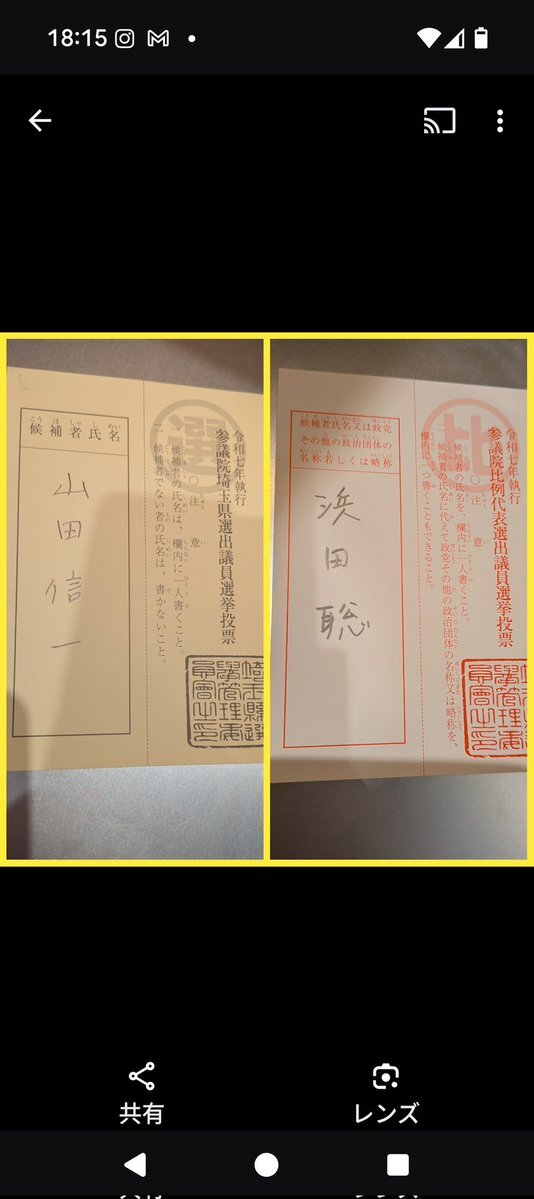 18:15
こうほしゃしめい
候補者氏名
山田信一
令和七年執行
参議院埼玉県選出議員選挙投票
選
○注意
一 候補者の氏名は、欄内に一人書くこと。
二 候補者でない者の氏名は、書かないこと。
埼玉県選
挙管理委
員会之印
候補者氏名又は政党
その他の政治団体の
名称若しくは略称
浜田聡
令和七年執行
参議院比例代表選出議員選挙投票
比
○注意
一 候補者の氏名を、欄内に一人書くこと。
二 候補者の氏名に代えて政党その他の政治団体の名称又は略称を、
欄内に一つ書くこともできること。
共有
レンズ